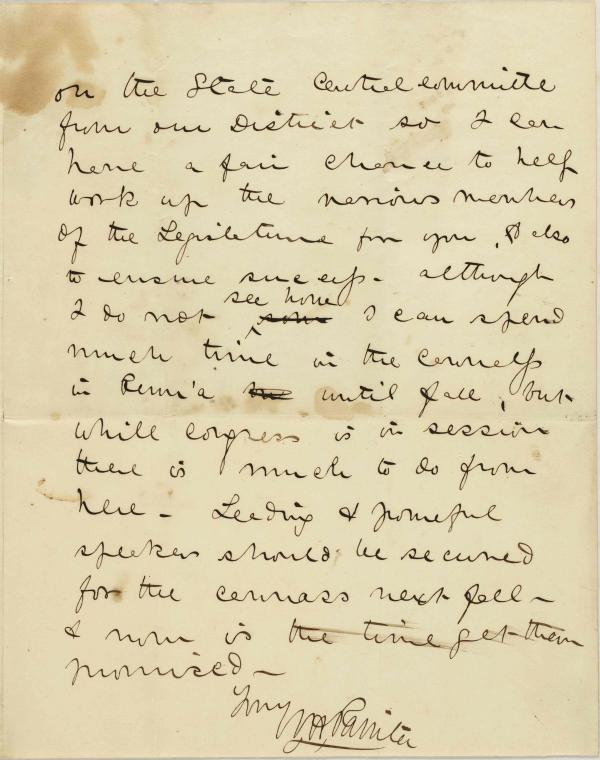 on the State Central committe
from our District so I can
have a fair chance to help
work up the various members
of the Legislature for you, & also
to ensure success - although
I do not see how I can spend
much time in the canvass
in Penn'a until fall, but
while congress is in session
there is much to do from
here - Leading & powerful
speakers should be secured
for the canvass next fall -
& now is the time get them
promised -
Truly
W H Painter